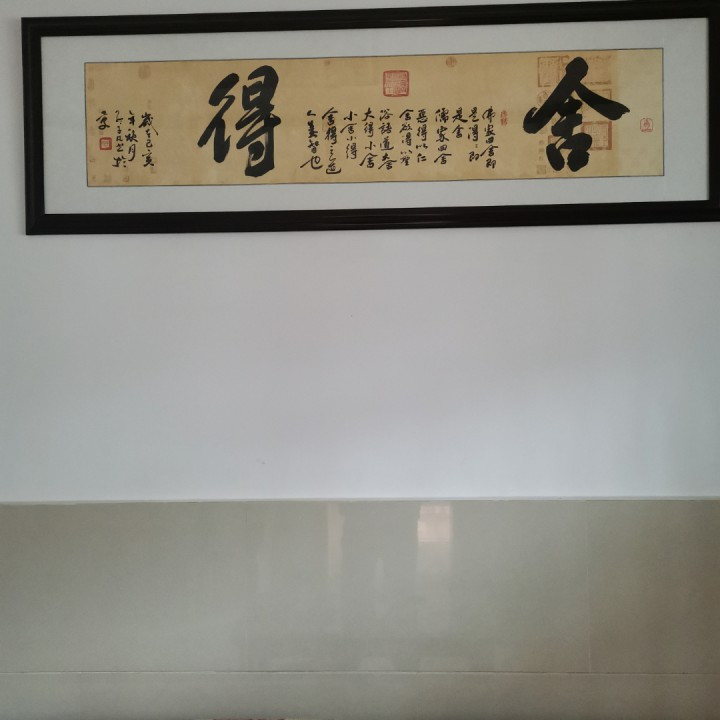 舍
佛家曰舍即
是得得即
是舍
儒家曰舍
惡得以仁
舍欲得以聖
俗語道大舍
大得小舍
小舍小得
舍得之道
人生智也
得
歲在己亥
年秋月